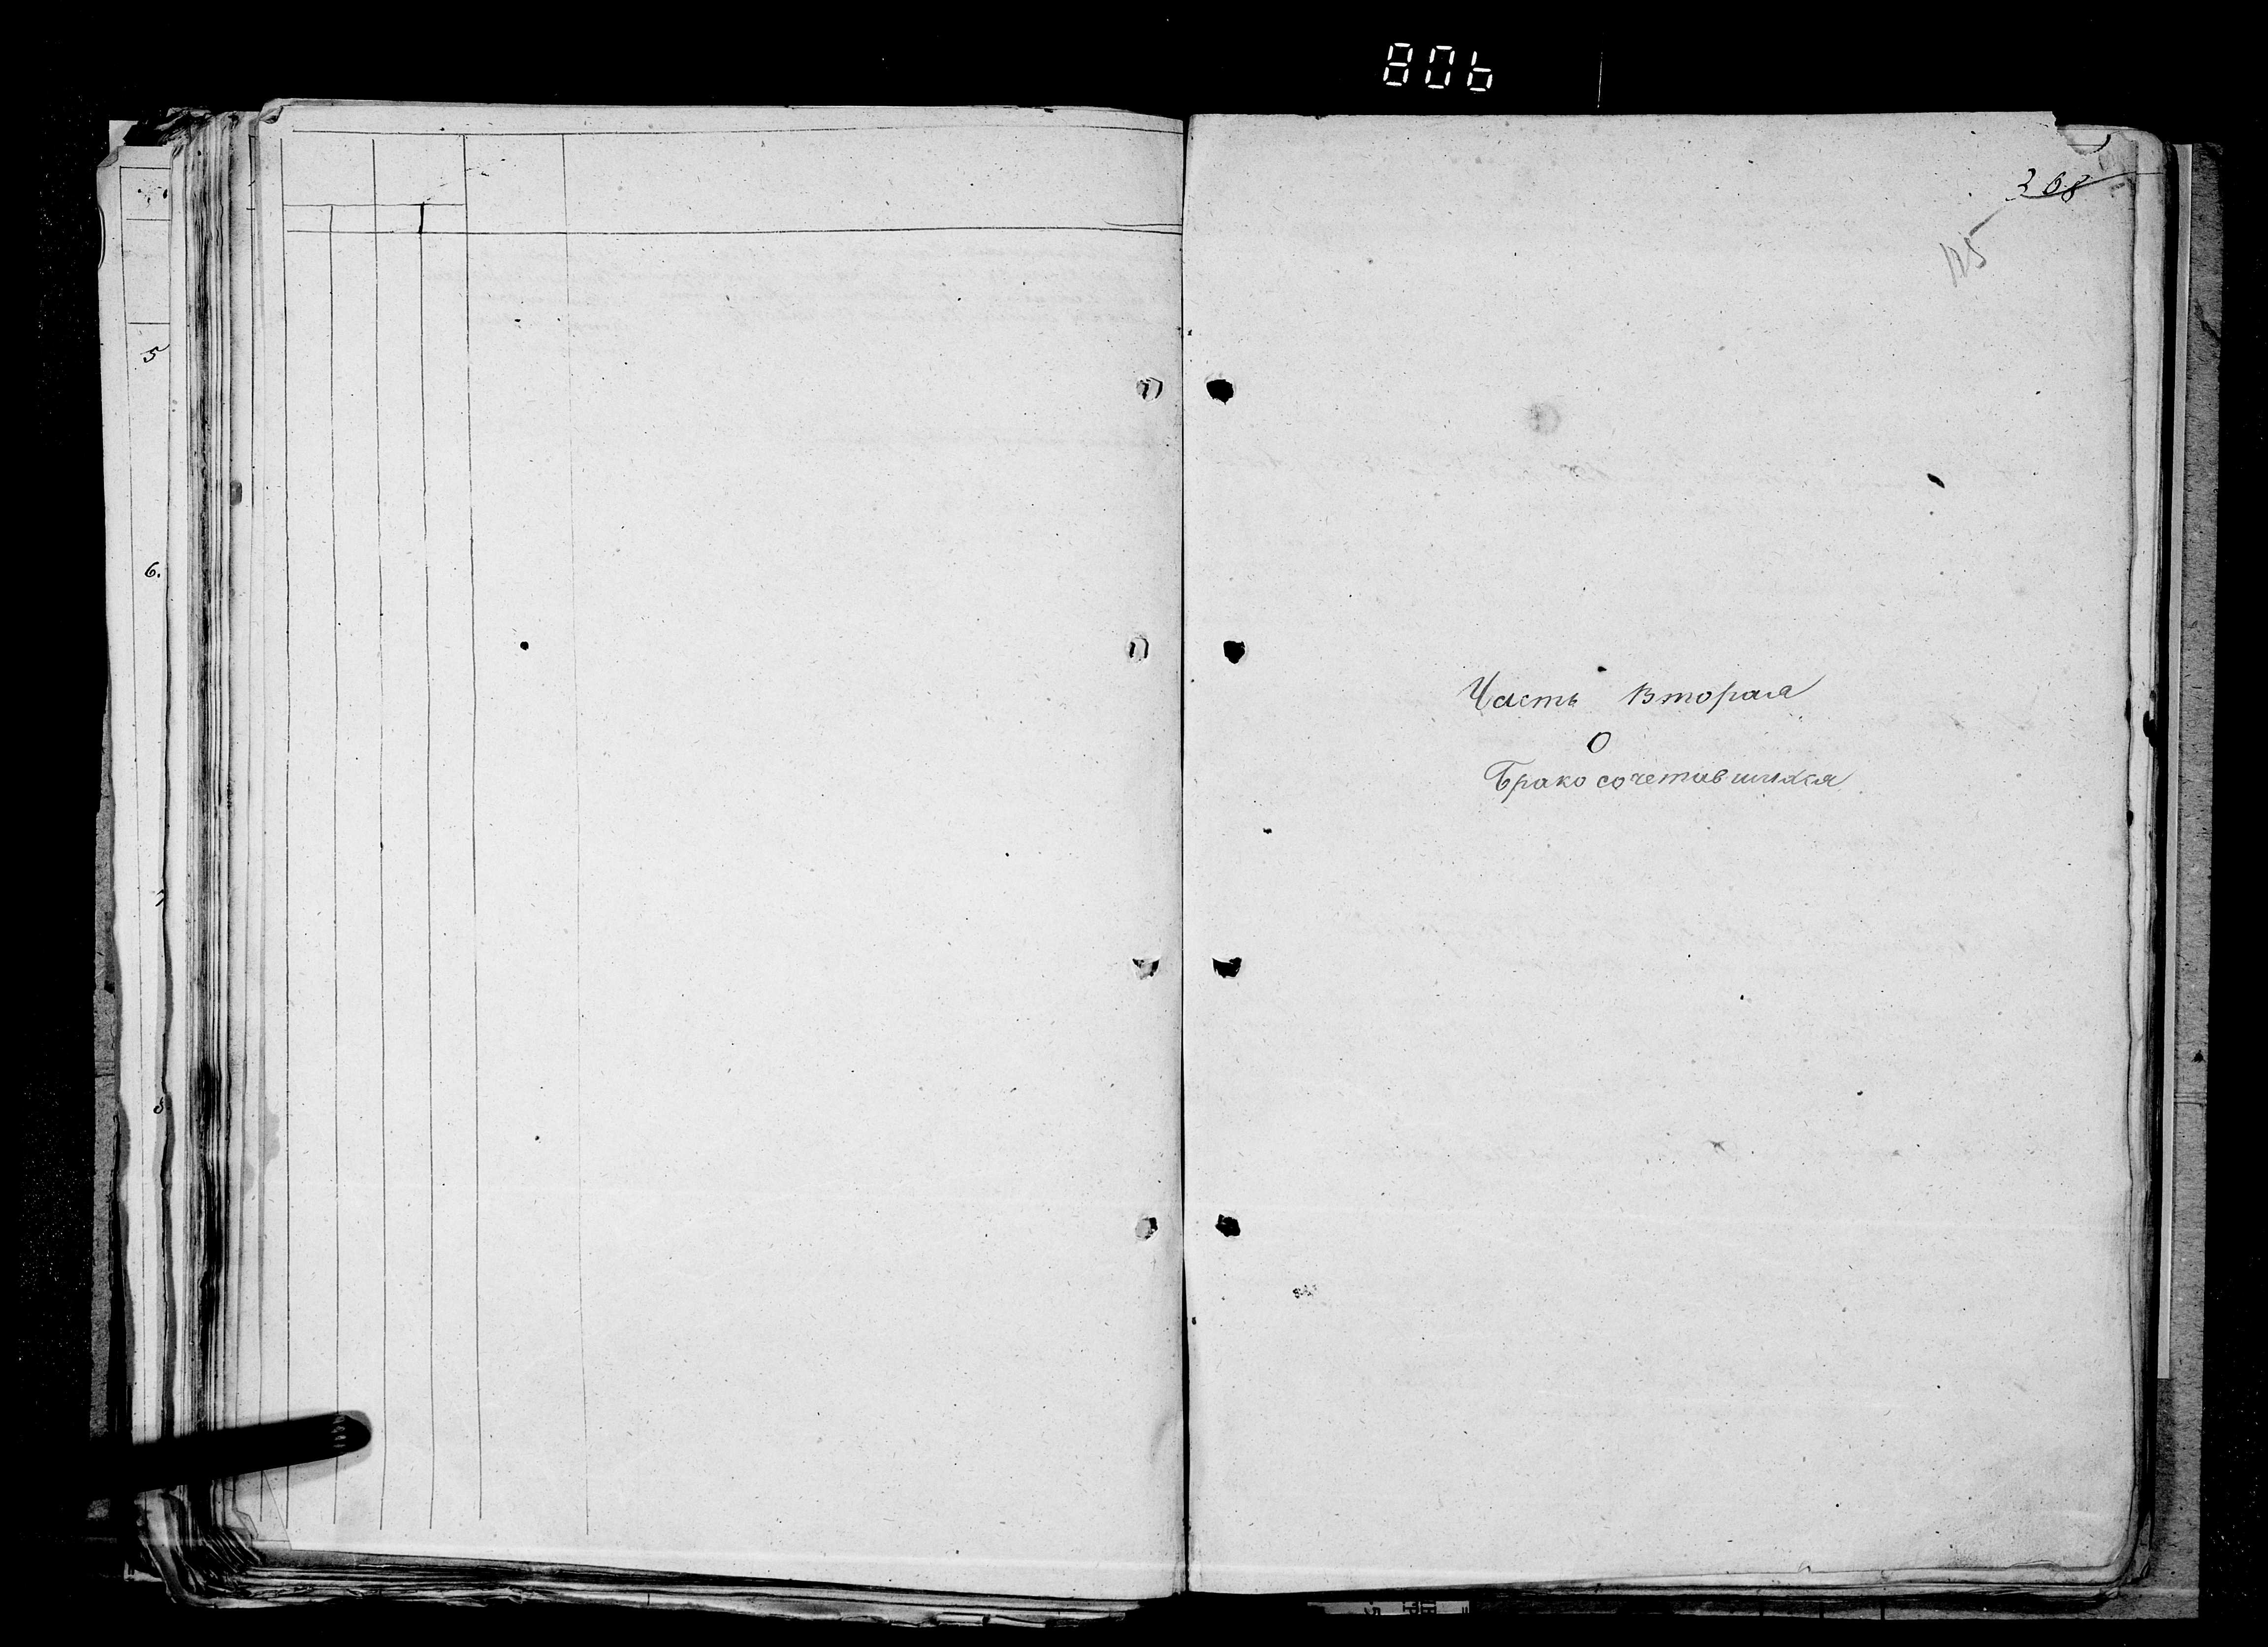 806
308
115
5
6.
7
8
Часть Вторая
О
Бракосочетавшихся